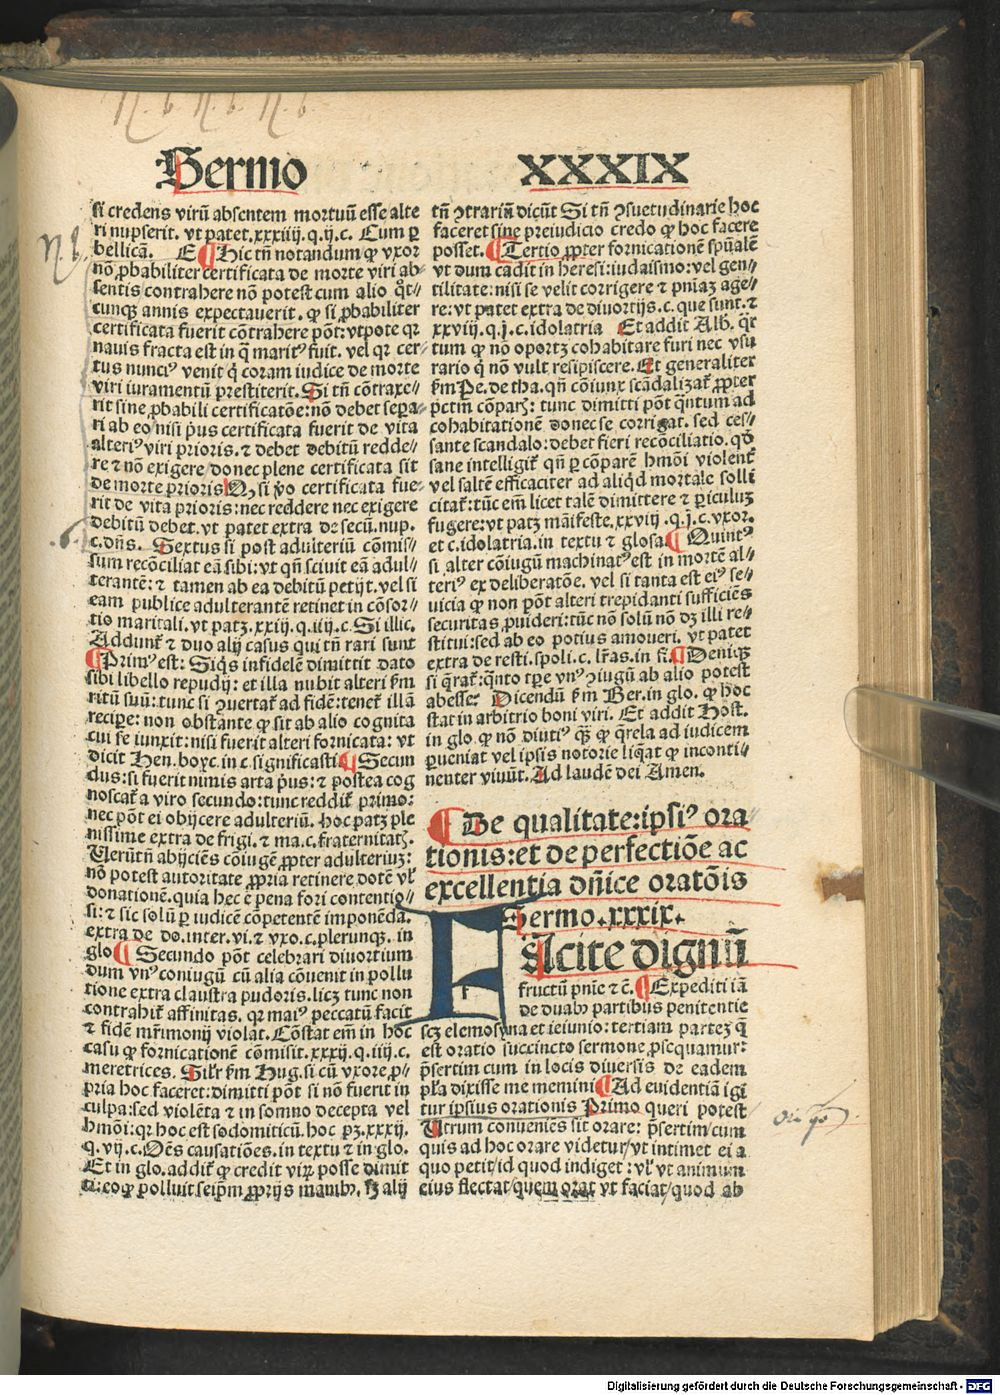 Sermo XXXIX
si credens virū absentem mortuū esse alte
ri nupserit. vt patet.xxxiiij.q.ij.c. Cum ꝑ
bellicā. E ¶ Hic tn̄ notandum ꝙ vxor
nō ꝓbabiliter certificata de morte viri ab⸗
sentis contrahere nō potest cum alio q̄t⸗
cunqꝫ annis expectauerit. ꝙ si ꝓbabiliter
certificata fuerit cōtrahere pōt: vtpote qꝛ
nauis fracta est in q̄ maritꝰ fuit. vel qꝛ cer⸗
tus nunciꝰ venit q̇ coram iudice de morte
viri iuramentū prestiterit. Si tn̄ cōtraxe⸗
rit sine ꝓbabili certificatōe: nō debet sepa⸗
ri ab eo/nisi p̄us certificata fuerit de vita
alteriꝰ viri prioris. ⁊ debet debitū redde⸗
re ⁊ nō exigere/donec plene certificata sit
de morte prioris Qꝫ si v̊o certificata fue⸗
rit de vita prioris: nec reddere nec exigere
debitū debet. vt patet extra de secū. nup.
c. dn̄s. Sextus si post adulteriū cōmis⸗
sum recōciliat eā sibi: vt qn̄ sciuit eā adul⸗
terantē: ⁊ tamen ab ea debitū petijt. vel si
eam publice adulterantē retinet in cōsor⸗
tio maritali. vt patꝫ. xxiij.q.iiij.c. Si illic.
Addunt̄ ⁊ duo alij casus qui tn̄ rari sunt
¶ Primꝰ est: Siq̇s infidelē dimittit dato
sibi libello repudij: et illa nubit alteri ẜm
ritū suū: tunc si ꝯuertat̄ ad fidē: tenet̄ illā
recipe: non obstante ꝙ sit ab alio cognita
cui se iunxit: nisi fuerit alteri fornicata: vt
dicit Hen. boxc. in c. significasti. ¶ Secun
dus: si fuerit nimis arta p̄us: ⁊ postea cog
noscat̄ a viro secundo: tunc reddit̄ primo:
nec pōt ei obijcere adulteriū. hoc patꝫ ple
nissime extra de frigi. ⁊ ma. c. fraternitatꝭ.
Verūtn̄ abijciēs cōiugē ꝓpter adulteriuꝫ:
nō potest autoritate ꝓpria retinere dotē vl̄
donationē. quia hec ē pena fori contentio⸗
si: ⁊ sic solū ꝑ iudicē cōpetentē imponēda.
extra de do. inter. vi. ⁊ vxo. c. plerunqꝫ. in
glo ¶ Secundo pōt celebrari diuortium
dum vnꝰ coniugū cū alia cōuenit in pollu
tione extra claustra pudoris. licꝫ tunc non
contrahit̄ affinitas. qꝛ maiꝰ peccatū facit
⁊ fidē mr̄imonij violat. Cōstat em̄ in hoc
casu ꝙ fornicationē cōmisit. xxxij.q.iiij.c.
meretrices. Silr̄ ẜm Hug. si cū vxore ꝓ⸗
pria hoc faceret: dimitti pōt si nō fuerit in
culpa: sed violēta ⁊ in somno decepta vel
hmōi: qꝛ hoc est sodomiticū. hoc pꝫ. xxxij.
q. vij. c. Oēs causatiōes. in textu ⁊ in glo.
Et in glo. addit̄ ꝙ credit virꝫ posse dimit
ti: eo ꝙ polluit seip̄m ꝓprijs manibꝰ. sꝫ alij
tn̄ ꝯtrariū dicūt Si tn̄ ꝯsuetudinarie hoc
faceret sine preiudicio credo ꝙ hoc facere
posset. ¶ Tertio ꝓpter fornicationē spūalē
vt dum cadit in heresi: iudaismo: vel gen⸗
tilitate: nisi se velit corrigere ⁊ pn̄iaꝫ age⸗
re: vt patet extra de diuortijs. c. que sunt. ⁊
xxviij.q.j.c. idolatria Et addit Alb. q̄r
tum ꝙ nō oportꝫ cohabitare furi nec vsu
rario q̄ nō vult resipiscere. Et generaliter
ẜm Pe. de tha. qn̄ cōiunx scādalizat̄ ꝓpter
pctm̄ cōparꝭ: tunc dimitti pōt q̄ntum ad
cohabitationē donec se corrigat. sed ces⸗
sante scandalo: debet fieri recōciliatio. qḋ
sane intelligit̄ qn̄ ꝑ cōparē hmōi violent̄
vel saltē efficaciter ad aliq̇d mortale solli
citat̄: tūc em̄ licet talē dimittere ⁊ ꝑiculuꝫ
fugere: vt patꝫ māifeste. xxviij.q.j.c. vxor.
et c. idolatria. in textu ⁊ glosa. ¶ Quintꝰ
si alter cōiugū machinatꝰ est in mortē al⸗
teriꝰ ex deliberatōe. vel si tanta est eiꝰ se⸗
uicia ꝙ non pōt alteri trepidanti sufficiēs
securitas ꝓuideri: tūc nō solū nō dꝫ illi re⸗
stitui: sed ab eo potius amoueri. vt patet
extra de resti. spoli. c. lr̄as. in fi. ¶ Deniqꝫ
si q̄rat̄: q̄nto tꝑe vnꝰ ꝯiugū ab alio potest
abesse: Dicendū ẜm Ber. in glo. ꝙ hoc
stat in arbitrio boni viri. Et addit Host.
in glo. ꝙ nō diutiꝰ q̄ꝫ ꝙ q̄rela ad iudicem
ꝑueniat vel ipsis notorie liq̄at ꝙ inconti⸗
nenter viuūt. Ad laudē dei Amen.
¶ De qualitate: ipsiꝰ ora⸗
tionis: et de perfectiōe ac
excellentia dn̄ice oratōis
Sermo.xxxix.
FAcite dignū
fructū pn̄ie ⁊ c̄. ¶ Expediti iā
de duabꝫ partibus penitentie
scꝫ elemosyna et ieiunio: tertiam partez q̄
est oratio succincto sermone ꝓsequamur:
p̄sertim cum in locis diuersis de eadem
pl̄a dixisse me memini ¶ Ad euidentiā igi
tur ipsius orationis Primo queri potest
Vtrum conueniēs sit orare: p̄sertim/cum
quis ad hoc orare videtur/vt intimet ei a
quo petit/id quod indiget: vl̄ vt animum
eius flectat/quem orat vt faciat/quod ab
Digitalisierung gefördert durch die Deutsche Forschungsgemeinschaft - DFG